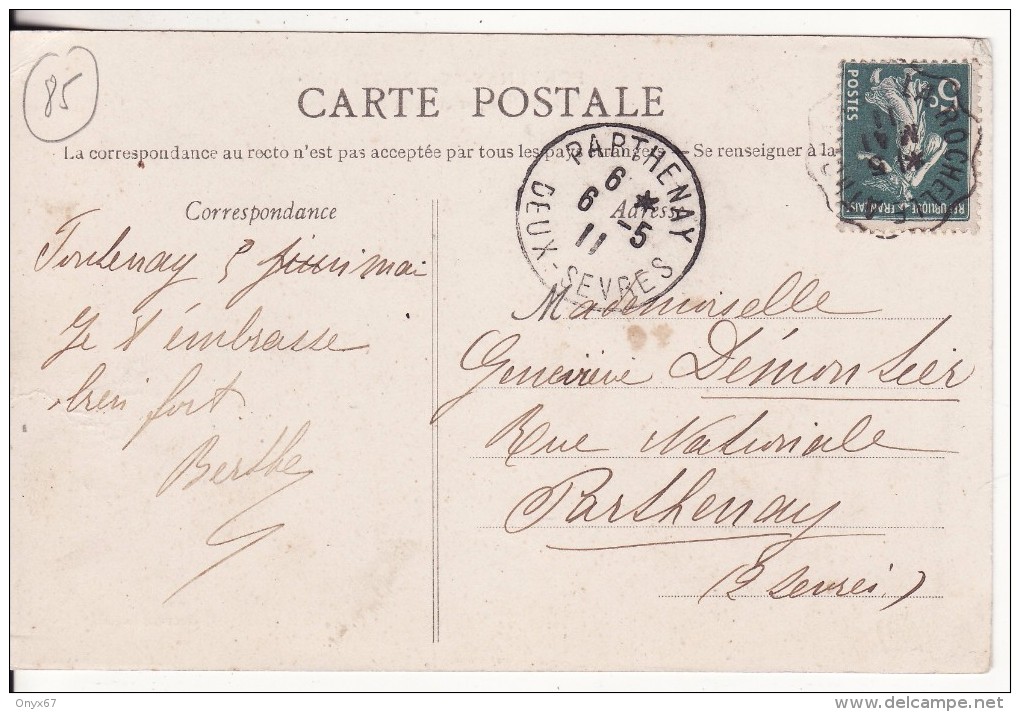 85
CARTE POSTALE
La correspondance au recto n'est pas acceptée par tous les pays étrangers — Se renseigner à la
Correspondance
Fontenay 5 mai
Je t'embrasse
bien fort
Berthe
Adresse
Mademoiselle
Geneviève Démontier
Rue Nationale
Parthenay
(2 Sevres)
PARTHENAY
6 *
6 -5
11
DEUX-SEVRES
5c
POSTES
REPUBLIQUE FRANÇAISE
LA ROCHE
Onyx67
www.delcampe.net